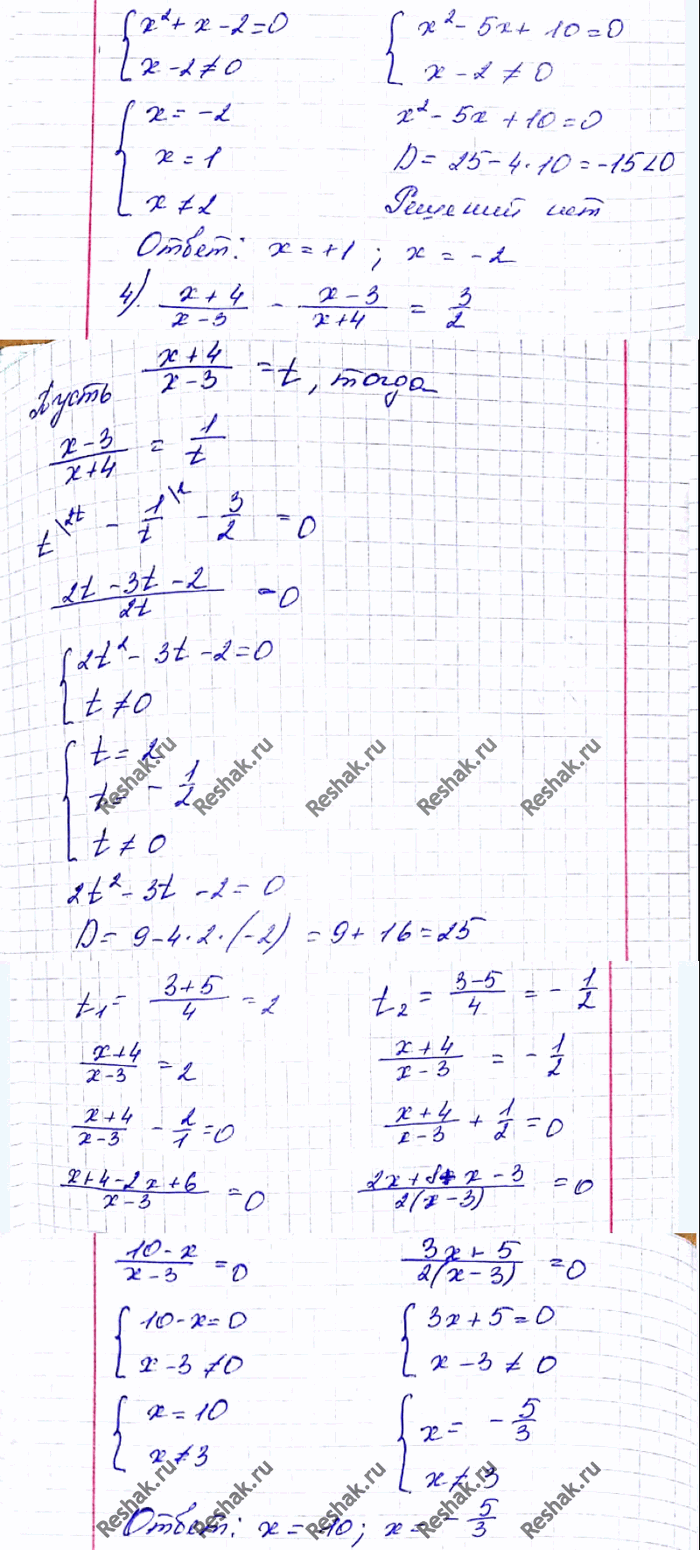 { x² + x - 2 = 0    { x² - 5x + 10 = 0
{ x - 2 ≠ 0    { x - 2 ≠ 0
{ x = -2    x² - 5x + 10 = 0
{ x = 1    D = 25 - 4·10 = -15 < 0
{ x ≠ 2    Решений нет
Ответ: x = +1 ; x = -2
4) (x + 4)/(x - 3) - (x - 3)/(x + 4) = 3/2
Пусть (x + 4)/(x - 3) = t, тогда
(x - 3)/(x + 4) = 1/t
t\2t - 1/t\2 - 3/2 = 0
(2t - 3t - 2)/2t = 0
{ 2t² - 3t - 2 = 0
{ t ≠ 0
{ t = 2
{ t = - 1/2
{ t ≠ 0
2t² - 3t - 2 = 0
D = 9 - 4·2·(-2) = 9 + 16 = 25
t₁ = (3 + 5)/4 = 2    t₂ = (3 - 5)/4 = - 1/2
(x + 4)/(x - 3) = 2    (x + 4)/(x - 3) = - 1/2
(x + 4)/(x - 3) - 2/1 = 0    (x + 4)/(x - 3) + 1/2 = 0
(x + 4 - 2x + 6)/(x - 3) = 0    (2x + 8 + x - 3)/2(x - 3) = 0
(10 - x)/(x - 3) = 0    (3x + 5)/2(x - 3) = 0
{ 10 - x = 0    { 3x + 5 = 0
{ x - 3 ≠ 0    { x - 3 ≠ 0
{ x = 10    { x = - 5/3
{ x ≠ 3    { x ≠ 3
Ответ: x = 10; x = - 5/3
Reshak.ru Reshak.ru Reshak.ru Reshak.ru Reshak.ru
Reshak.ru Reshak.ru Reshak.ru Reshak.ru Reshak.ru